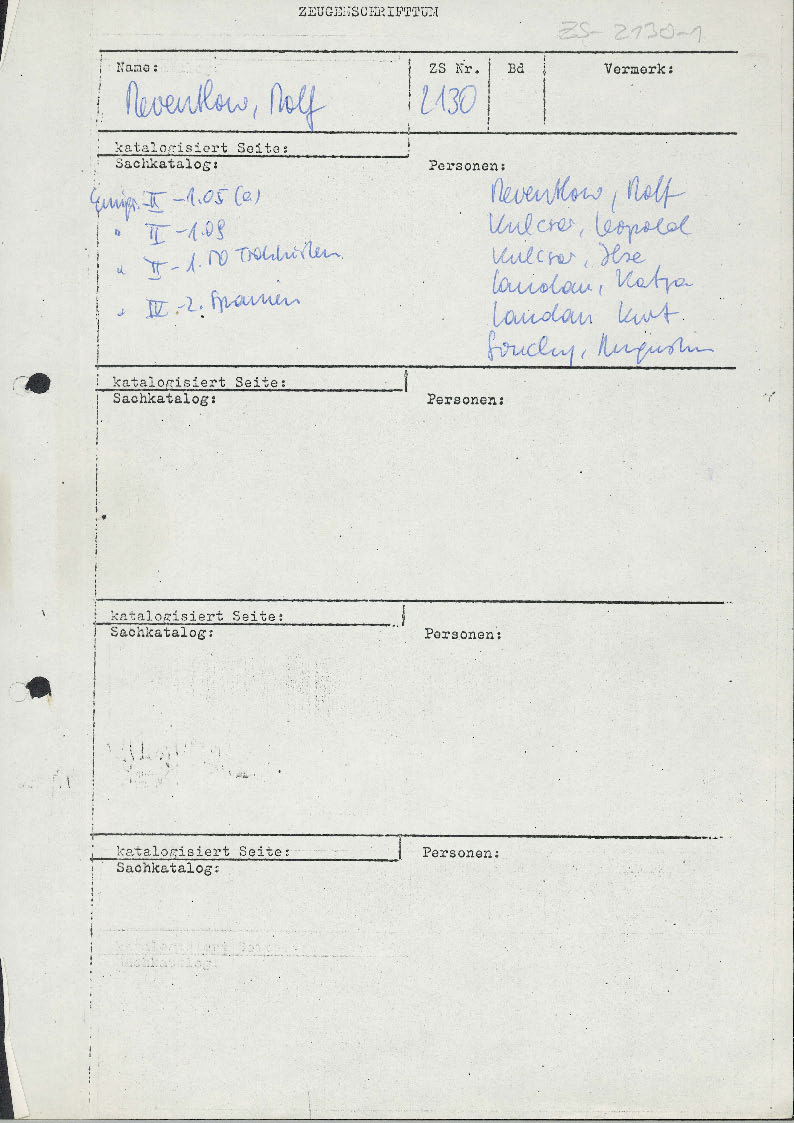 ZEUGENSCHRIFTTUM
ZS-2130-1
Name: ZS Nr. Bd Vermerk:
Reventlow, Rolf 2130
katalogisiert Seite:
Sachkatalog: Personen:
Emigr. II - 1.05 (a) Reventlow, Rolf
" II - 1.09 Kulcsar, Leopold
" II - 1.10 Trotzkisten Kulcsar, Ilse
Landau, Katja
" IV - 2. Spanien Landau Kurt
Souchy, Augustin
katalogisiert Seite:
Sachkatalog: Personen:
katalogisiert Seite:
Sachkatalog: Personen:
katalogisiert Seite: Personen:
Sachkatalog:
katalogisiert Seite:
Sachkatalog: